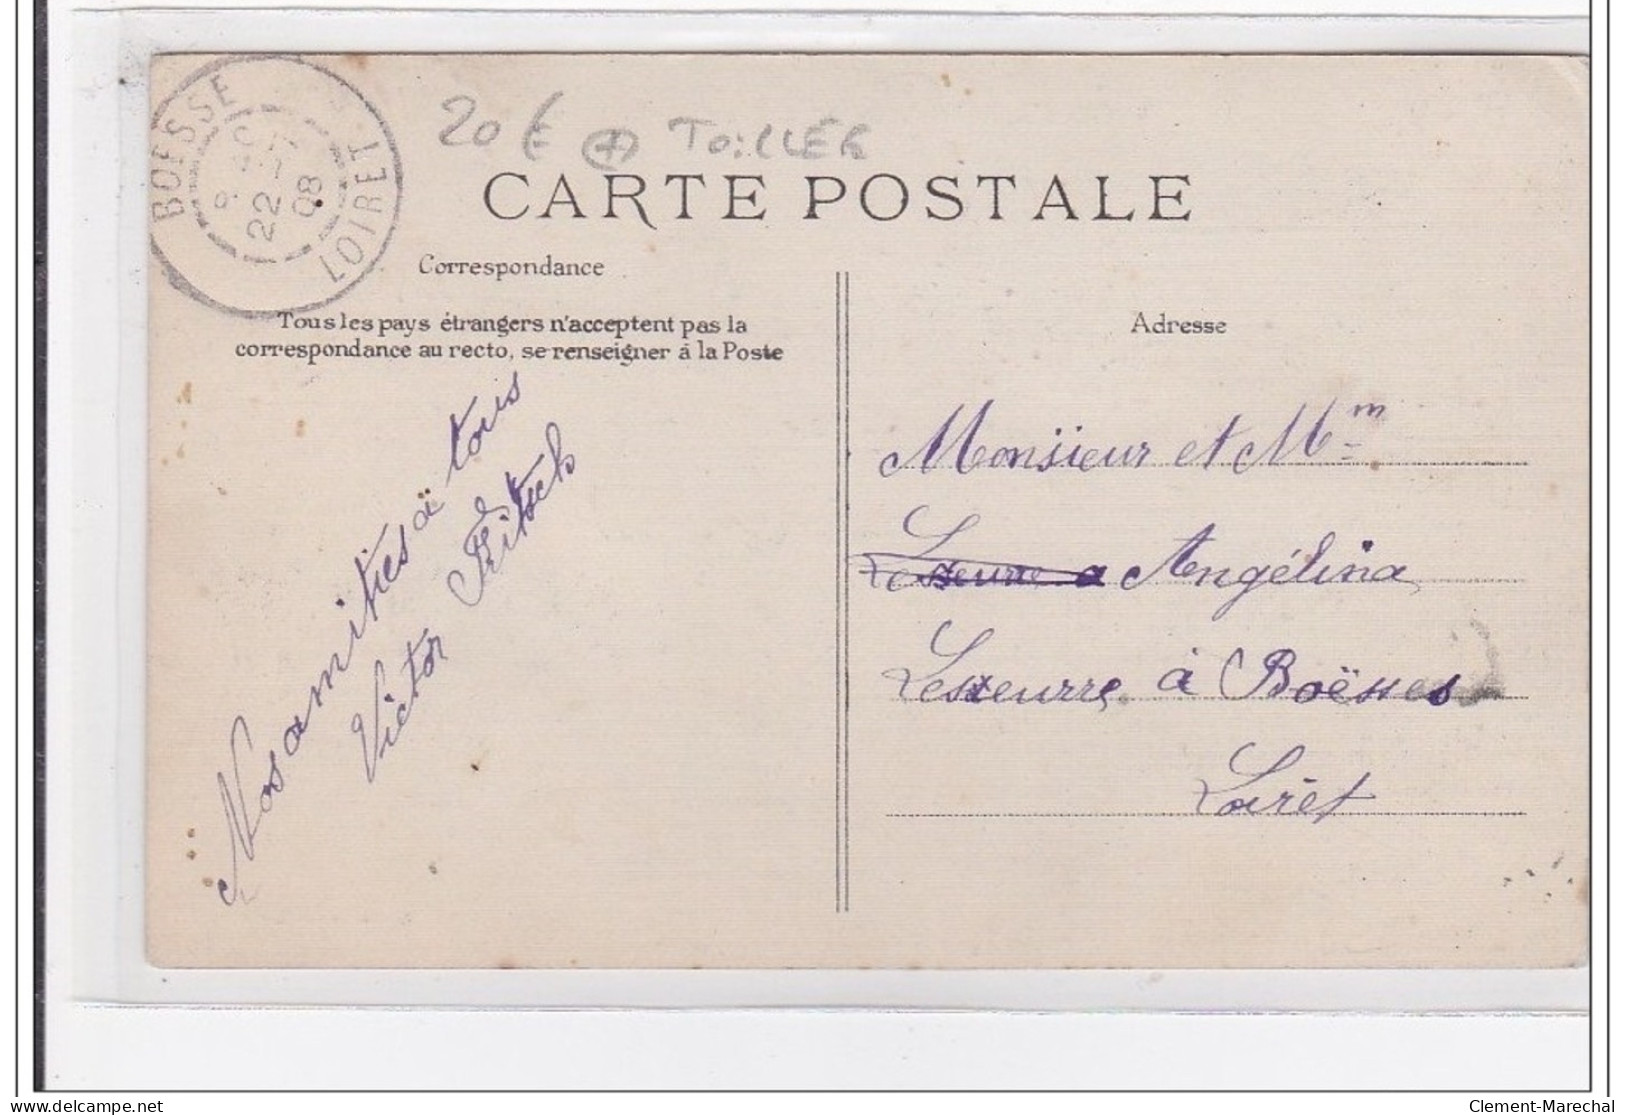 BOESSE
LOIRET
22
08
20 €
TOILLÉE
CARTE POSTALE
Correspondance
Tous les pays étrangers n'acceptent pas la
correspondance au recto, se renseigner à la Poste
Nos amitiés à tous
Victor Fritsch
Adresse
Monsieur et Mm
Angélina
Lesueurre à Boësses
Loiret
www.delcampe.net
Clement-Marechal